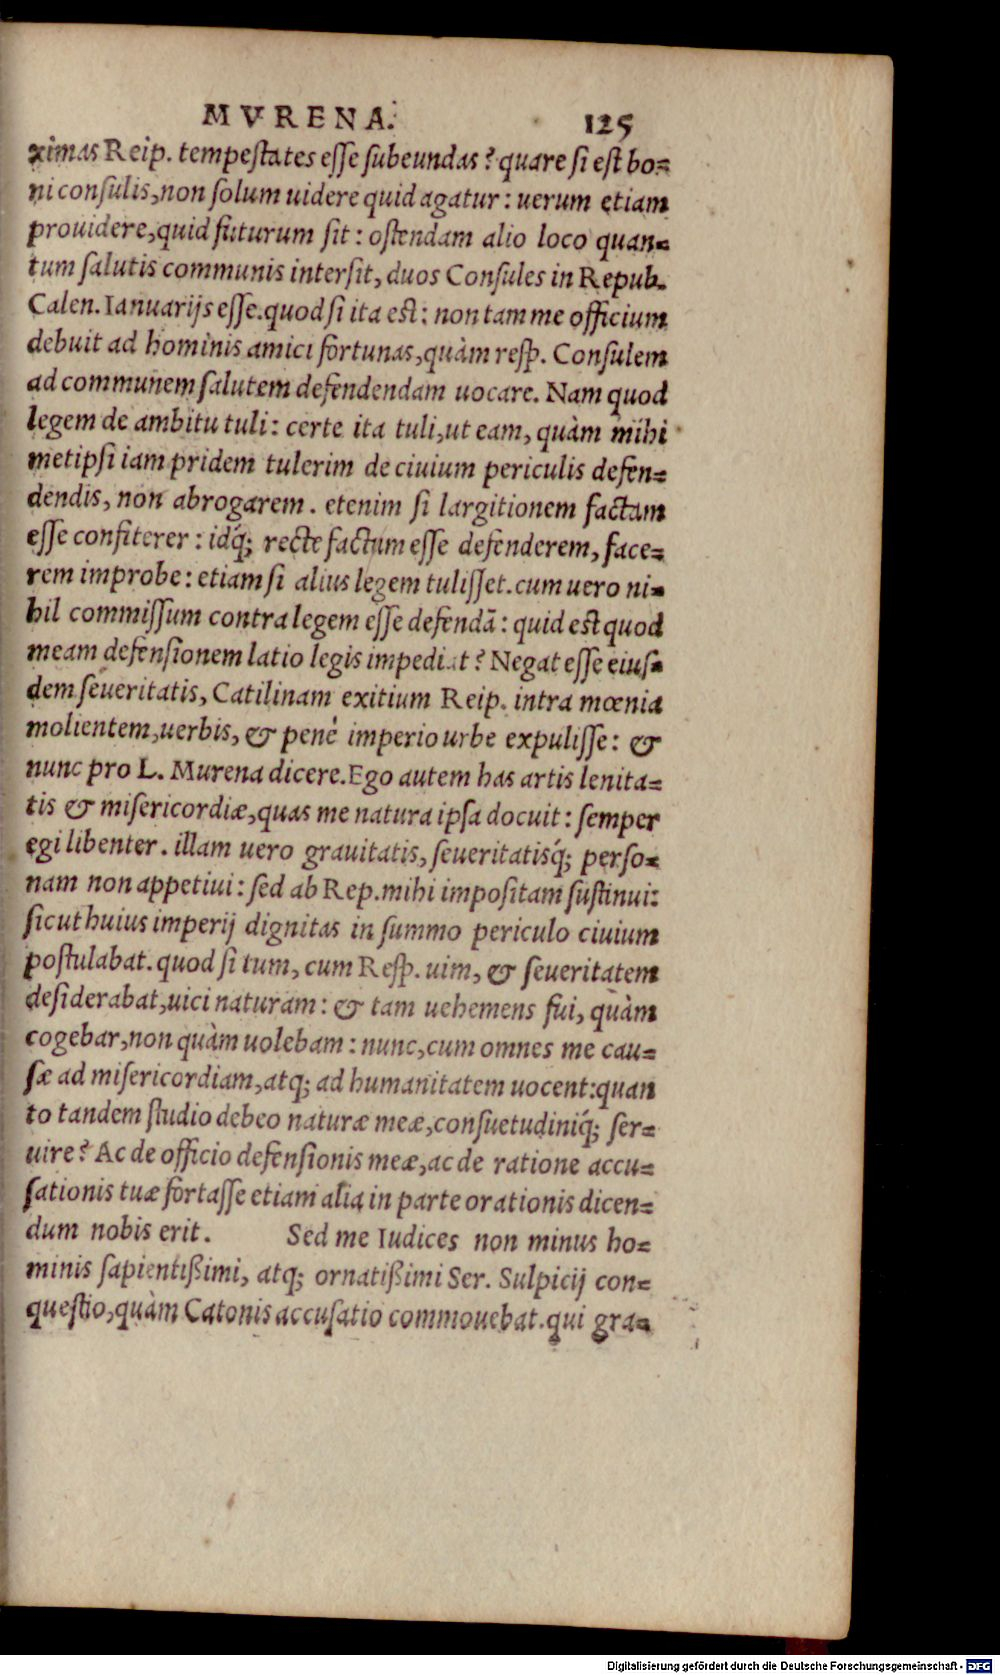 MVRENA. 125
ximas Reip. tempestates esse subeundas? quare si est bo=
ni consulis, non solum uidere quid agatur: uerum etiam
prouidere, quid futurum sit: ostendam alio loco quan=
tum salutis communis intersit, duos Consules in Repub.
Calen. Ianuarijs esse. quod si ita est: non tam me officium
debuit ad hominis amici fortunas, quàm resp. Consulem
ad communem salutem defendendam uocare. Nam quod
legem de ambitu tuli: certe ita tuli, ut eam, quàm mihi
metipsi iam pridem tulerim de ciuium periculis defen=
dendis, non abrogarem. etenim si largitionem factam
esse confiterer: idq́; recte factum esse defenderem, face=
rem improbe: etiam si alius legem tulisset. cum uero ni=
hil commissum contra legem esse defendã: quid est quod
meam defensionem latio legis impediat? Negat esse eius=
dem seueritatis, Catilinam exitium Reip. intra mœnia
molientem, uerbis, & penè imperio urbe expulisse: &
nunc pro L. Murena dicere. Ego autem has artis lenita=
tis & misericordiæ, quas me natura ipsa docuit: semper
egi libenter. illam uero grauitatis, seueritatisq́; perso=
nam non appetiui: sed ab Rep. mihi impositam sustinui:
sicut huius imperij dignitas in summo periculo ciuium
postulabat. quod si tum, cum Resp. uim, & seueritatem
desiderabat, uici naturam: & tam uehemens fui, quàm
cogebar, non quàm uolebam: nunc, cum omnes me cau=
sæ ad misericordiam, atq; ad humanitatem uocent: quan
to tandem studio debeo naturæ meæ, consuetudiniq́; ser=
uire? Ac de officio defensionis meæ, ac de ratione accu=
sationis tuæ fortasse etiam alia in parte orationis dicen=
dum nobis erit. Sed me Iudices non minus ho=
minis sapientißimi, atq; ornatißimi Ser. Sulpicij con=
questio, quàm Catonis accusatio commouebat. qui gra=
Digitalisierung gefördert durch die Deutsche Forschungsgemeinschaft - DFG